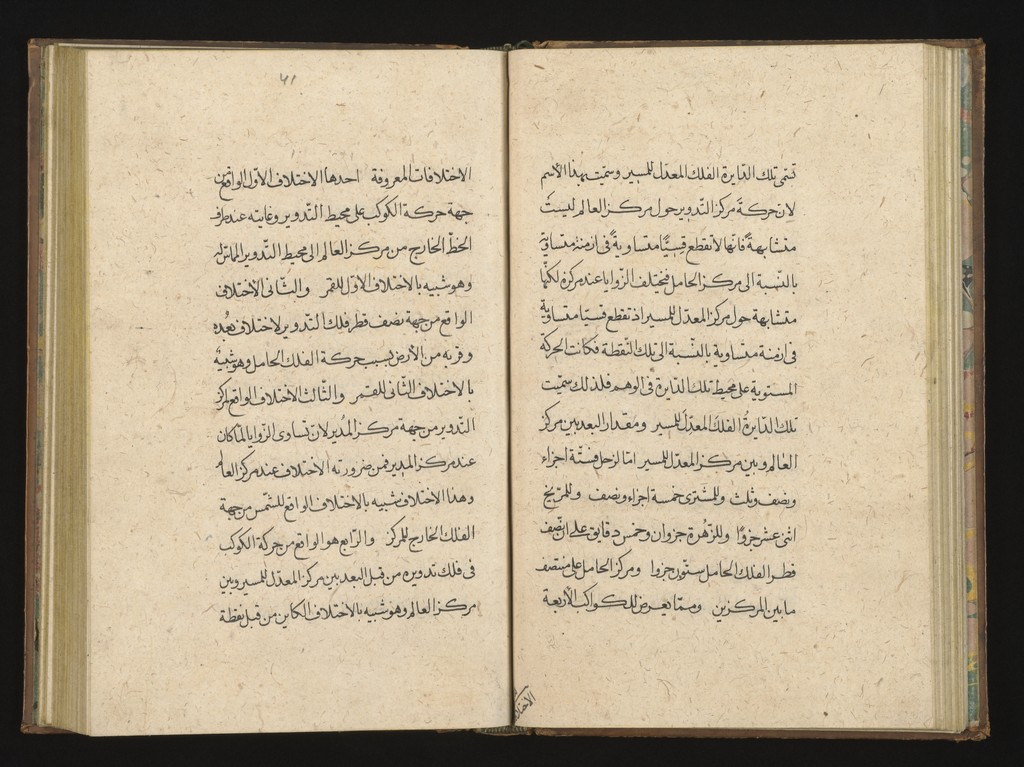 تسمّى تلك الدّايرة الفلك المعدّل للمسير وسمّيت بهذا الاسم
لانّ حركة مركز التّدوير حول مركز العالم ليست
متشابهة فانّها لا تقطع قسيّا متساوية فى ازمنة متساوية
بالنّسبة الى مركز الحامل فتختلف الزّوايا عند مركزه لكنّها
متشابهة حول مركز المعدّل للمسير اذ تقطع قسيّا متساوية
فى ازمنة متساوية بالنّسبة الى تلك النّقطة فكانت الحركة
المستوية على محيط تلك الدّايرة فى الوهم فلذلك سمّيت
تلك الدّايرةُ الفلكَ المعدّلَ للمسير ومقدار البعد بين مركز
العالم وبين مركز المعدّل للمسير امّا لزحل فستّة اجزاء
ونصف وثلث وللمشترى خمسة اجزاء ونصف وللمرّيخ
اثنى عشر جزوًا وللزّهرة جزوان وخمس دقايق على انّ نصف
قطر الفلك الحامل ستّون جزوا ومركز الحامل على منتصف
ما بين المركزين وممّا يعرض للكواكب الأربعة
الاختلافات
٦١
الاختلافات المعروفة احدها الاختلاف الاوّل الواقع من
جهة حركة الكوكب على محيط التّدوير وغايته عند طرف
الخطّ الخارج من مركز العالم الى محيط التّدوير المماسّ له
وهو شبيه بالاختلاف الاوّل للقمر والثّانى الاختلاف
الواقع من جهة نصف قطر فلك التّدوير لاختلاف بُعده
وقربه من الأرض بسبب حركة الفلك الحامل وهو شبيه
بالاختلاف الثّانى للقمر والثّالث الاختلاف الواقع لمركز
التّدوير من جهة مركز المُدير لانّ تساوى الزّوايا لمّا كان
عند مركز المدير فمن ضرورته الاختلاف عند مركز العالم
وهذا الاختلاف شبيه بالاختلاف الواقع للشّمس من جهة
الفلك الخارج المركز والرّابع هو الواقع من حركة الكوكب
فى فلك تدويره من قبل البعد بين مركز المعدّل للمسير وبين
مركز العالم وهو شبيه بالاختلاف الكاين من قبل نقطة